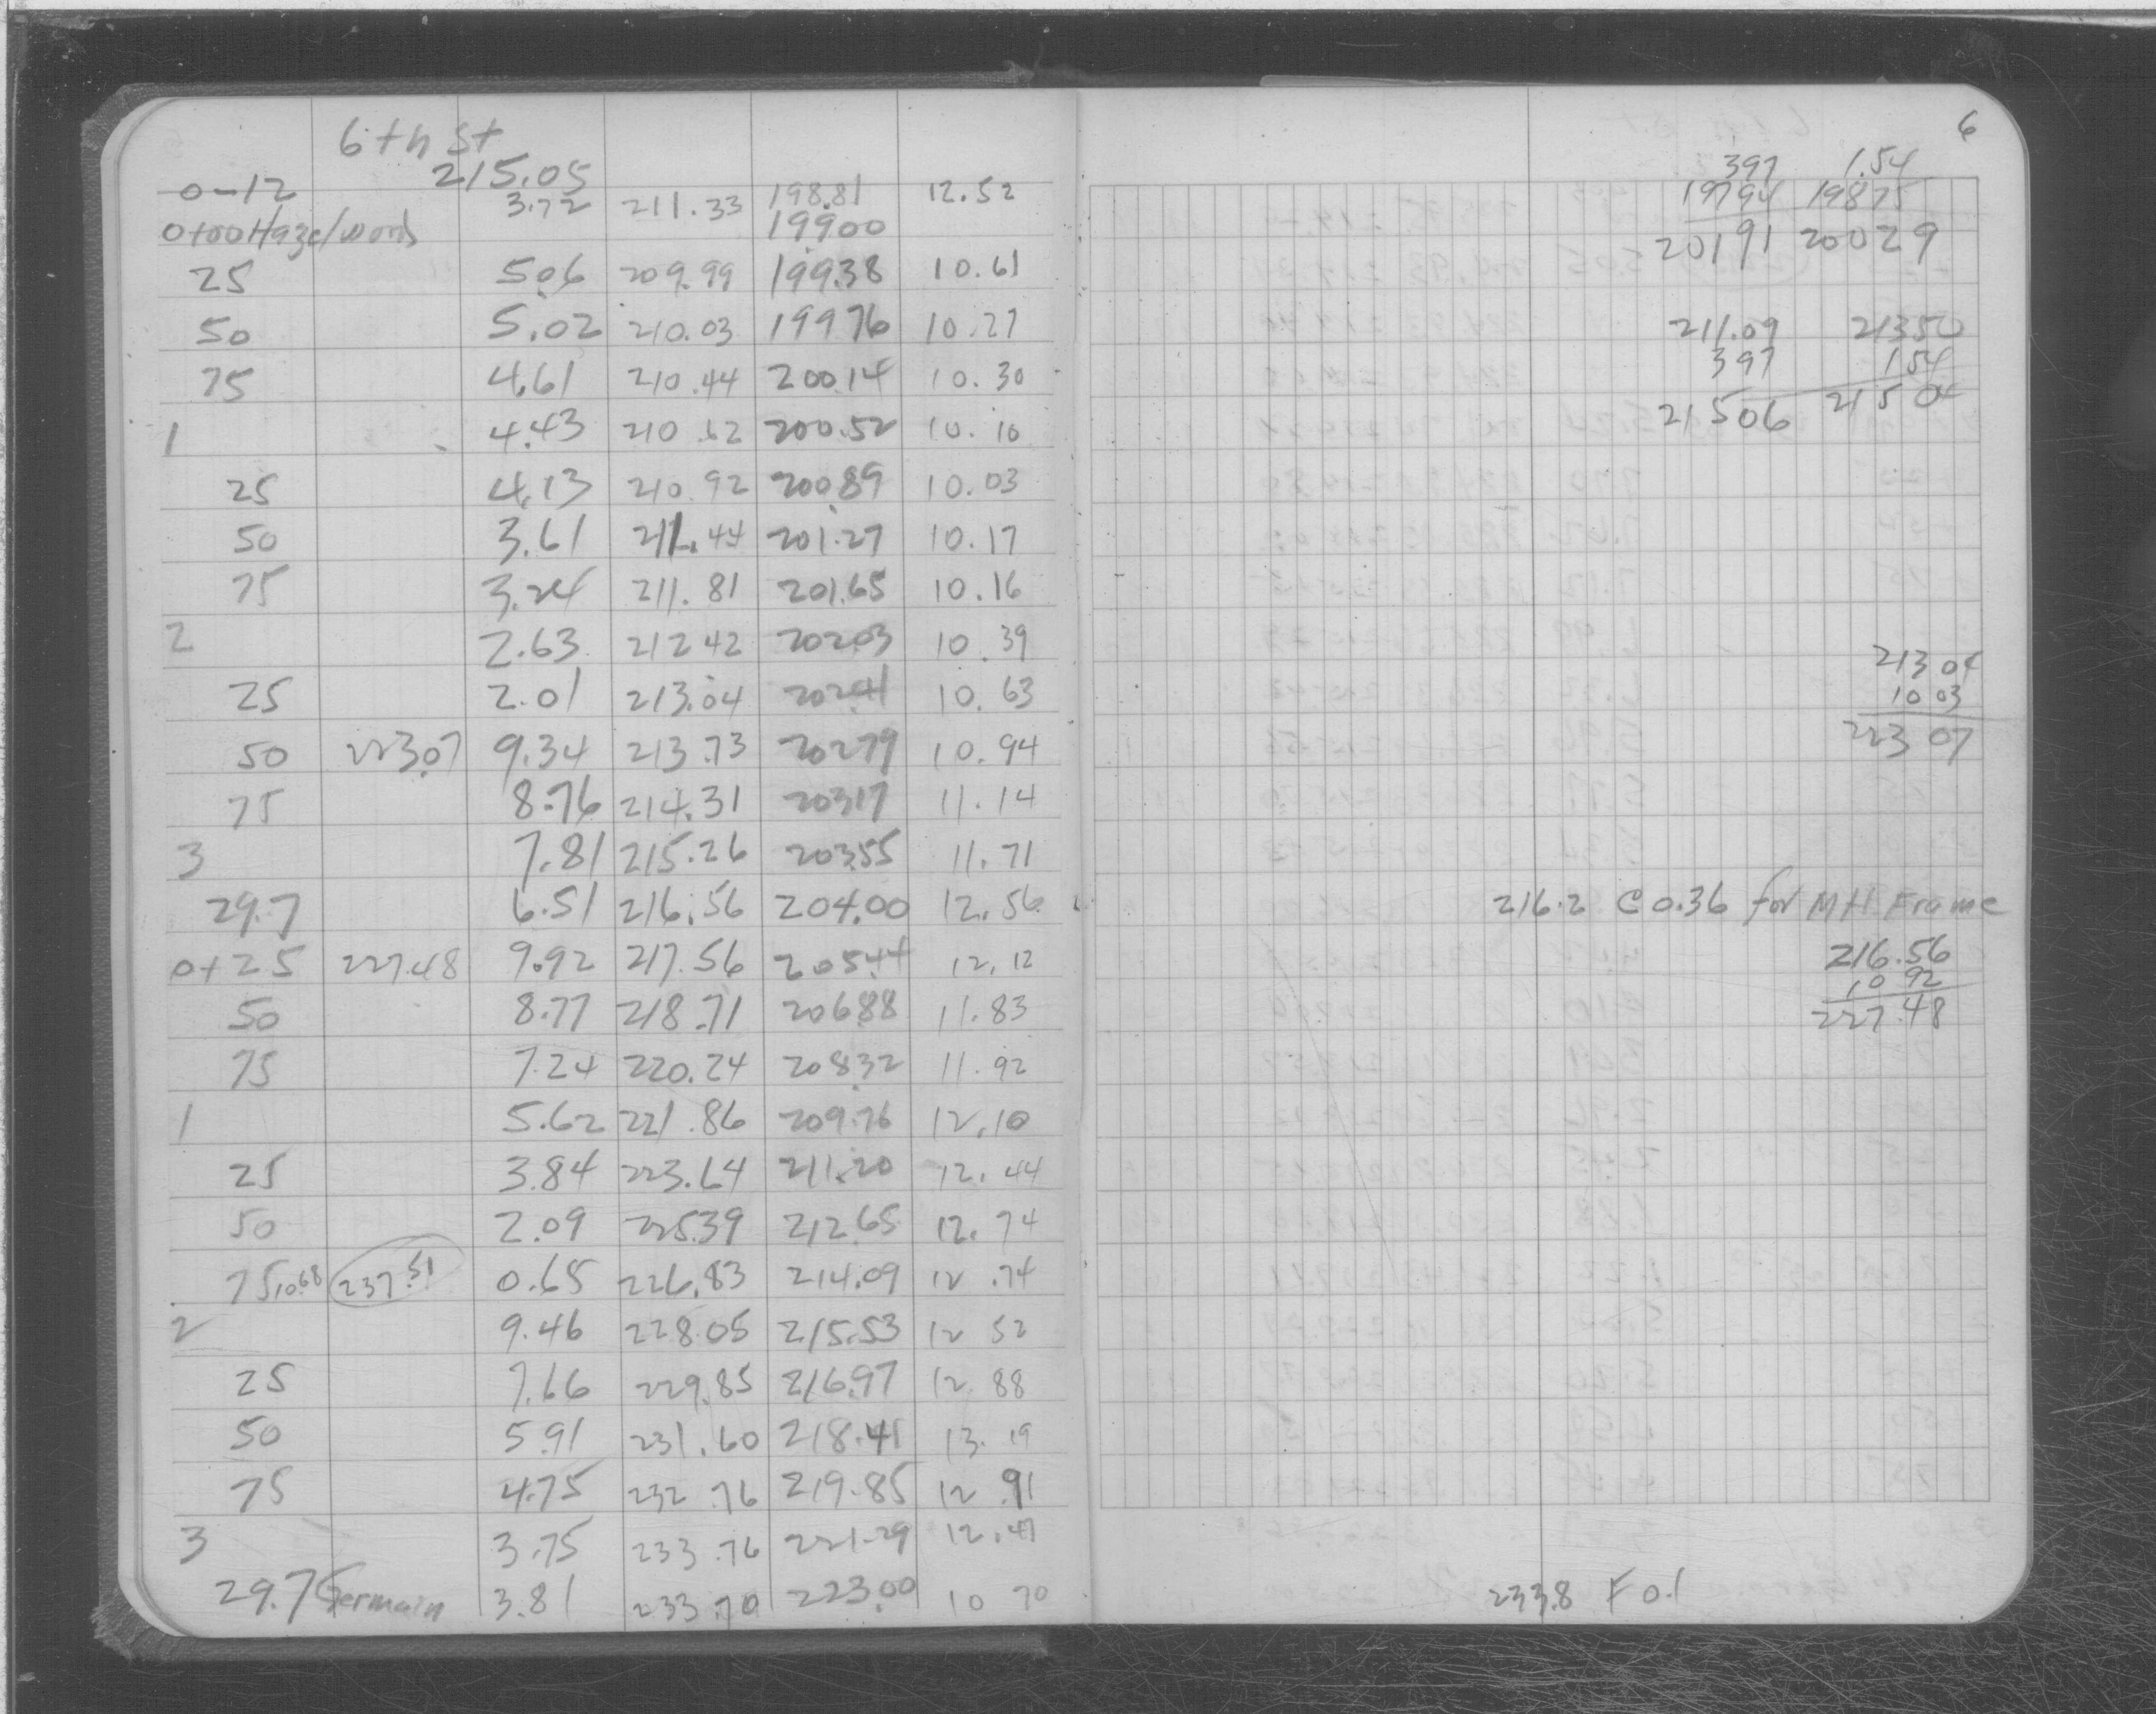 6th St
215.05
0-12 3.72 211.33 198.81 12.52
0+00 Hazelwood 199.00
25 5.06 209.99 199.38 10.61
50 5.02 210.03 199.76 10.27
75 4.61 210.44 200.14 10.30
1 4.43 210.62 200.52 10.10
25 4.13 210.92 200.89 10.03
50 3.61 211.44 201.27 10.17
75 3.24 211.81 201.65 10.16
2 2.63 212 42 202.03 10.39
25 2.01 213.04 202.41 10.63
50 223.07 9.34 213.73 202.79 10.94
75 8.76 214.31 203.17 11.14
3 7.81 215.26 203.55 11.71
29.7 6.51 216.56 204.00 12.56
0+25 227.48 9.92 217.56 205.44 12.12
50 8.77 218.71 206.88 11.83
75 7.24 220.24 208.32 11.92
1 5.62 221.86 209.76 12.10
25 3.84 223.64 211.20 12.44
50 2.09 225.39 212.65 12.74
75 10.68 237.51 0.65 226.83 214.09 12.74
2 9.46 228.05 215.53 12 52
25 7.66 229.85 216.97 12.88
50 5.91 231.60 218.41 13.19
75 4.75 232.76 219.85 12.91
3 3.75 233.76 221.29 12.47
29.7 Germain 3.81 233.70 223.00 10 70
6
397 1.54
19794 19875
20191 20029
211.09 21350
397 154
21506 21504
213 04
10 03
223 07
216.2 C 0.36 for MH Frame
216.56
10 92
227.48
233.8 F 0.1